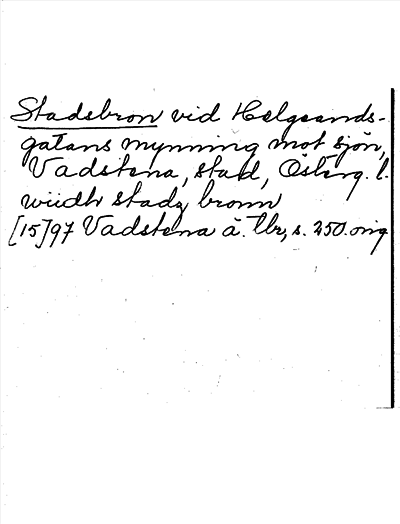 Stadsbron vid Helgeands-
gatans mynning mot sjön,
Vadstena, stad, Österg. l.
widh stadz bronn
[15]97 Vadstena ä. Tb, s. 250. orig